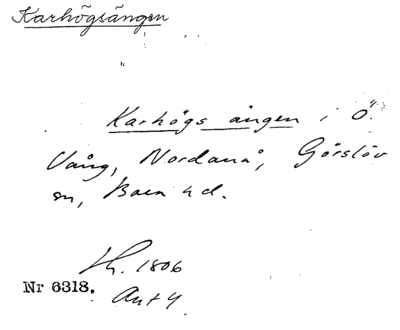 Karhögsängen
Karhögs ängen i Ö.
Vång, Nordanå, Görslöv
sn, Bara hd.
Lh. 1806
Nr 6318. Ant 4